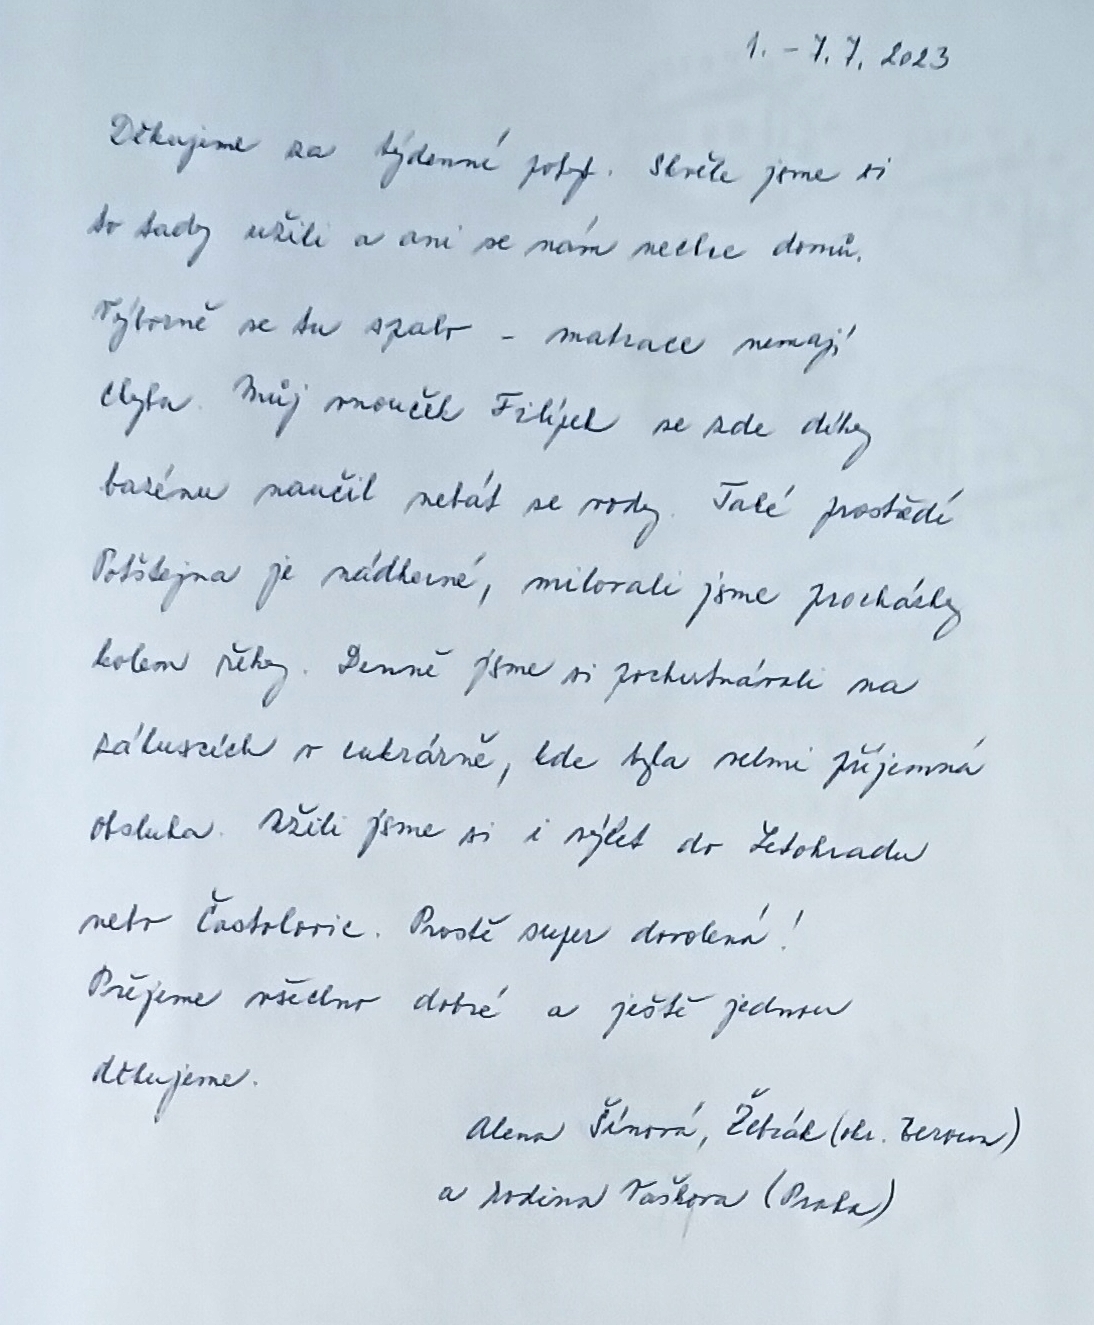 1. - 7. 7. 2023
Děkujeme za týdenní pobyt. Skvěle jsme si
to tady užili a ani se nám nechce domů.
Výborně se tu spalo - matrace nemají
chybu. Můj vnouček Filípek se zde díky
bazénu naučil nebát se vody. Také prostředí
Potštejna je nádherné, milovali jsme procházky
kolem řeky. Denně jsme si pochutnávali na
zákuscích v cukrárně, kde byla velmi příjemná
obsluha. Užili jsme si i výlet do Letohradu
nebo Častolovic. Prostě super dovolená!
Přejeme všechno dobré a ještě jednou
děkujeme.
Alena Šínová, Žebrák (okr. Beroun)
a rodina Vaškova (Praha)